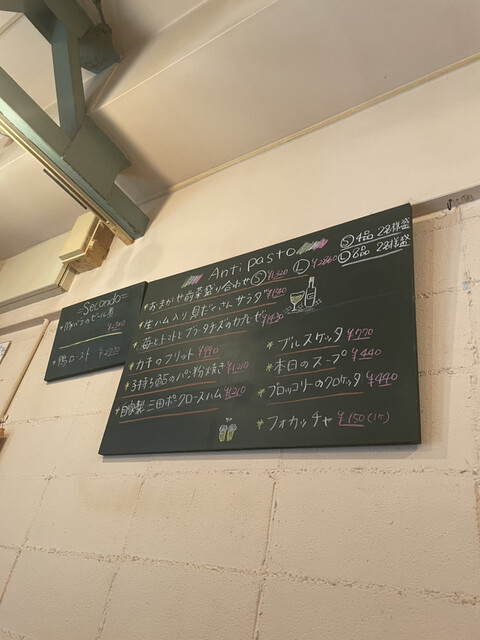 Antipasto
Ⓢ4品 2名様盛
Ⓛ6品 2名様盛
*おまかせ前菜盛り合わせ Ⓢ¥1,320 Ⓛ¥2860
*生ハム入り 具だくさんサラダ
*苺とトマトとブラータチーズのカプレーゼ
*カキのフリット ¥990
*子持ち鮎のパン粉焼き ¥1,210
*自家製 三田ポークロースハム ¥1,210
*ブルスケッタ ¥770
*本日のスープ ¥440
*ブロッコリーのクロケッタ ¥440
*フォカッチャ ¥150(1ヶ)
=Secondo=
ビール煮
*鴨ロースト